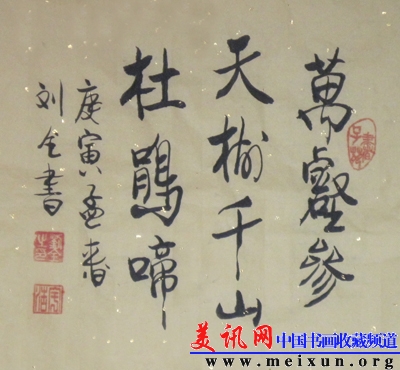 萬壑參
天樹千山
杜鵑啼
庚寅孟春
刘全書
美讯网 中国书画收藏频道
www.meixun.org